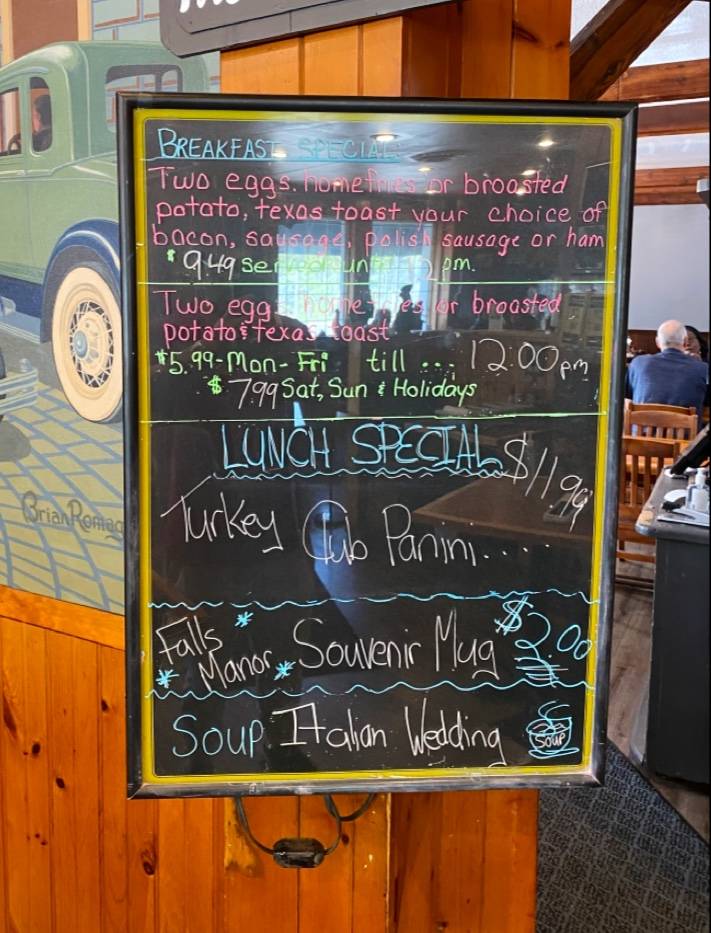 BREAKFAST SPECIAL
Two eggs, homefries or broasted
potato, texas toast your choice of
bacon, sausage, polish sausage or ham
$9.49 served until 12 pm.
Two eggs, homefries or broasted
potato & texas toast
$5.99-Mon-Fri till ... 12:00pm
$7.99 Sat, Sun & Holidays
LUNCH SPECIAL $11.99
Turkey Cub Panini.....
Falls Manor Souvenir Mug $2.00
Soup Italian Wedding Soup
Brian Romag